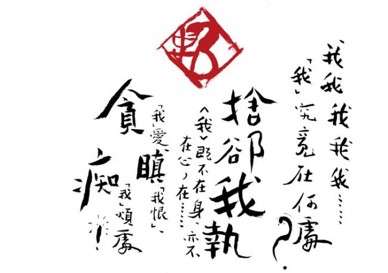 我我我我我……
「我」究竟在何處?
捨卻我執
《我》既不在身,亦不
在心,在……
「我愛」、「我恨」、
「我」煩
貪瞋痴!